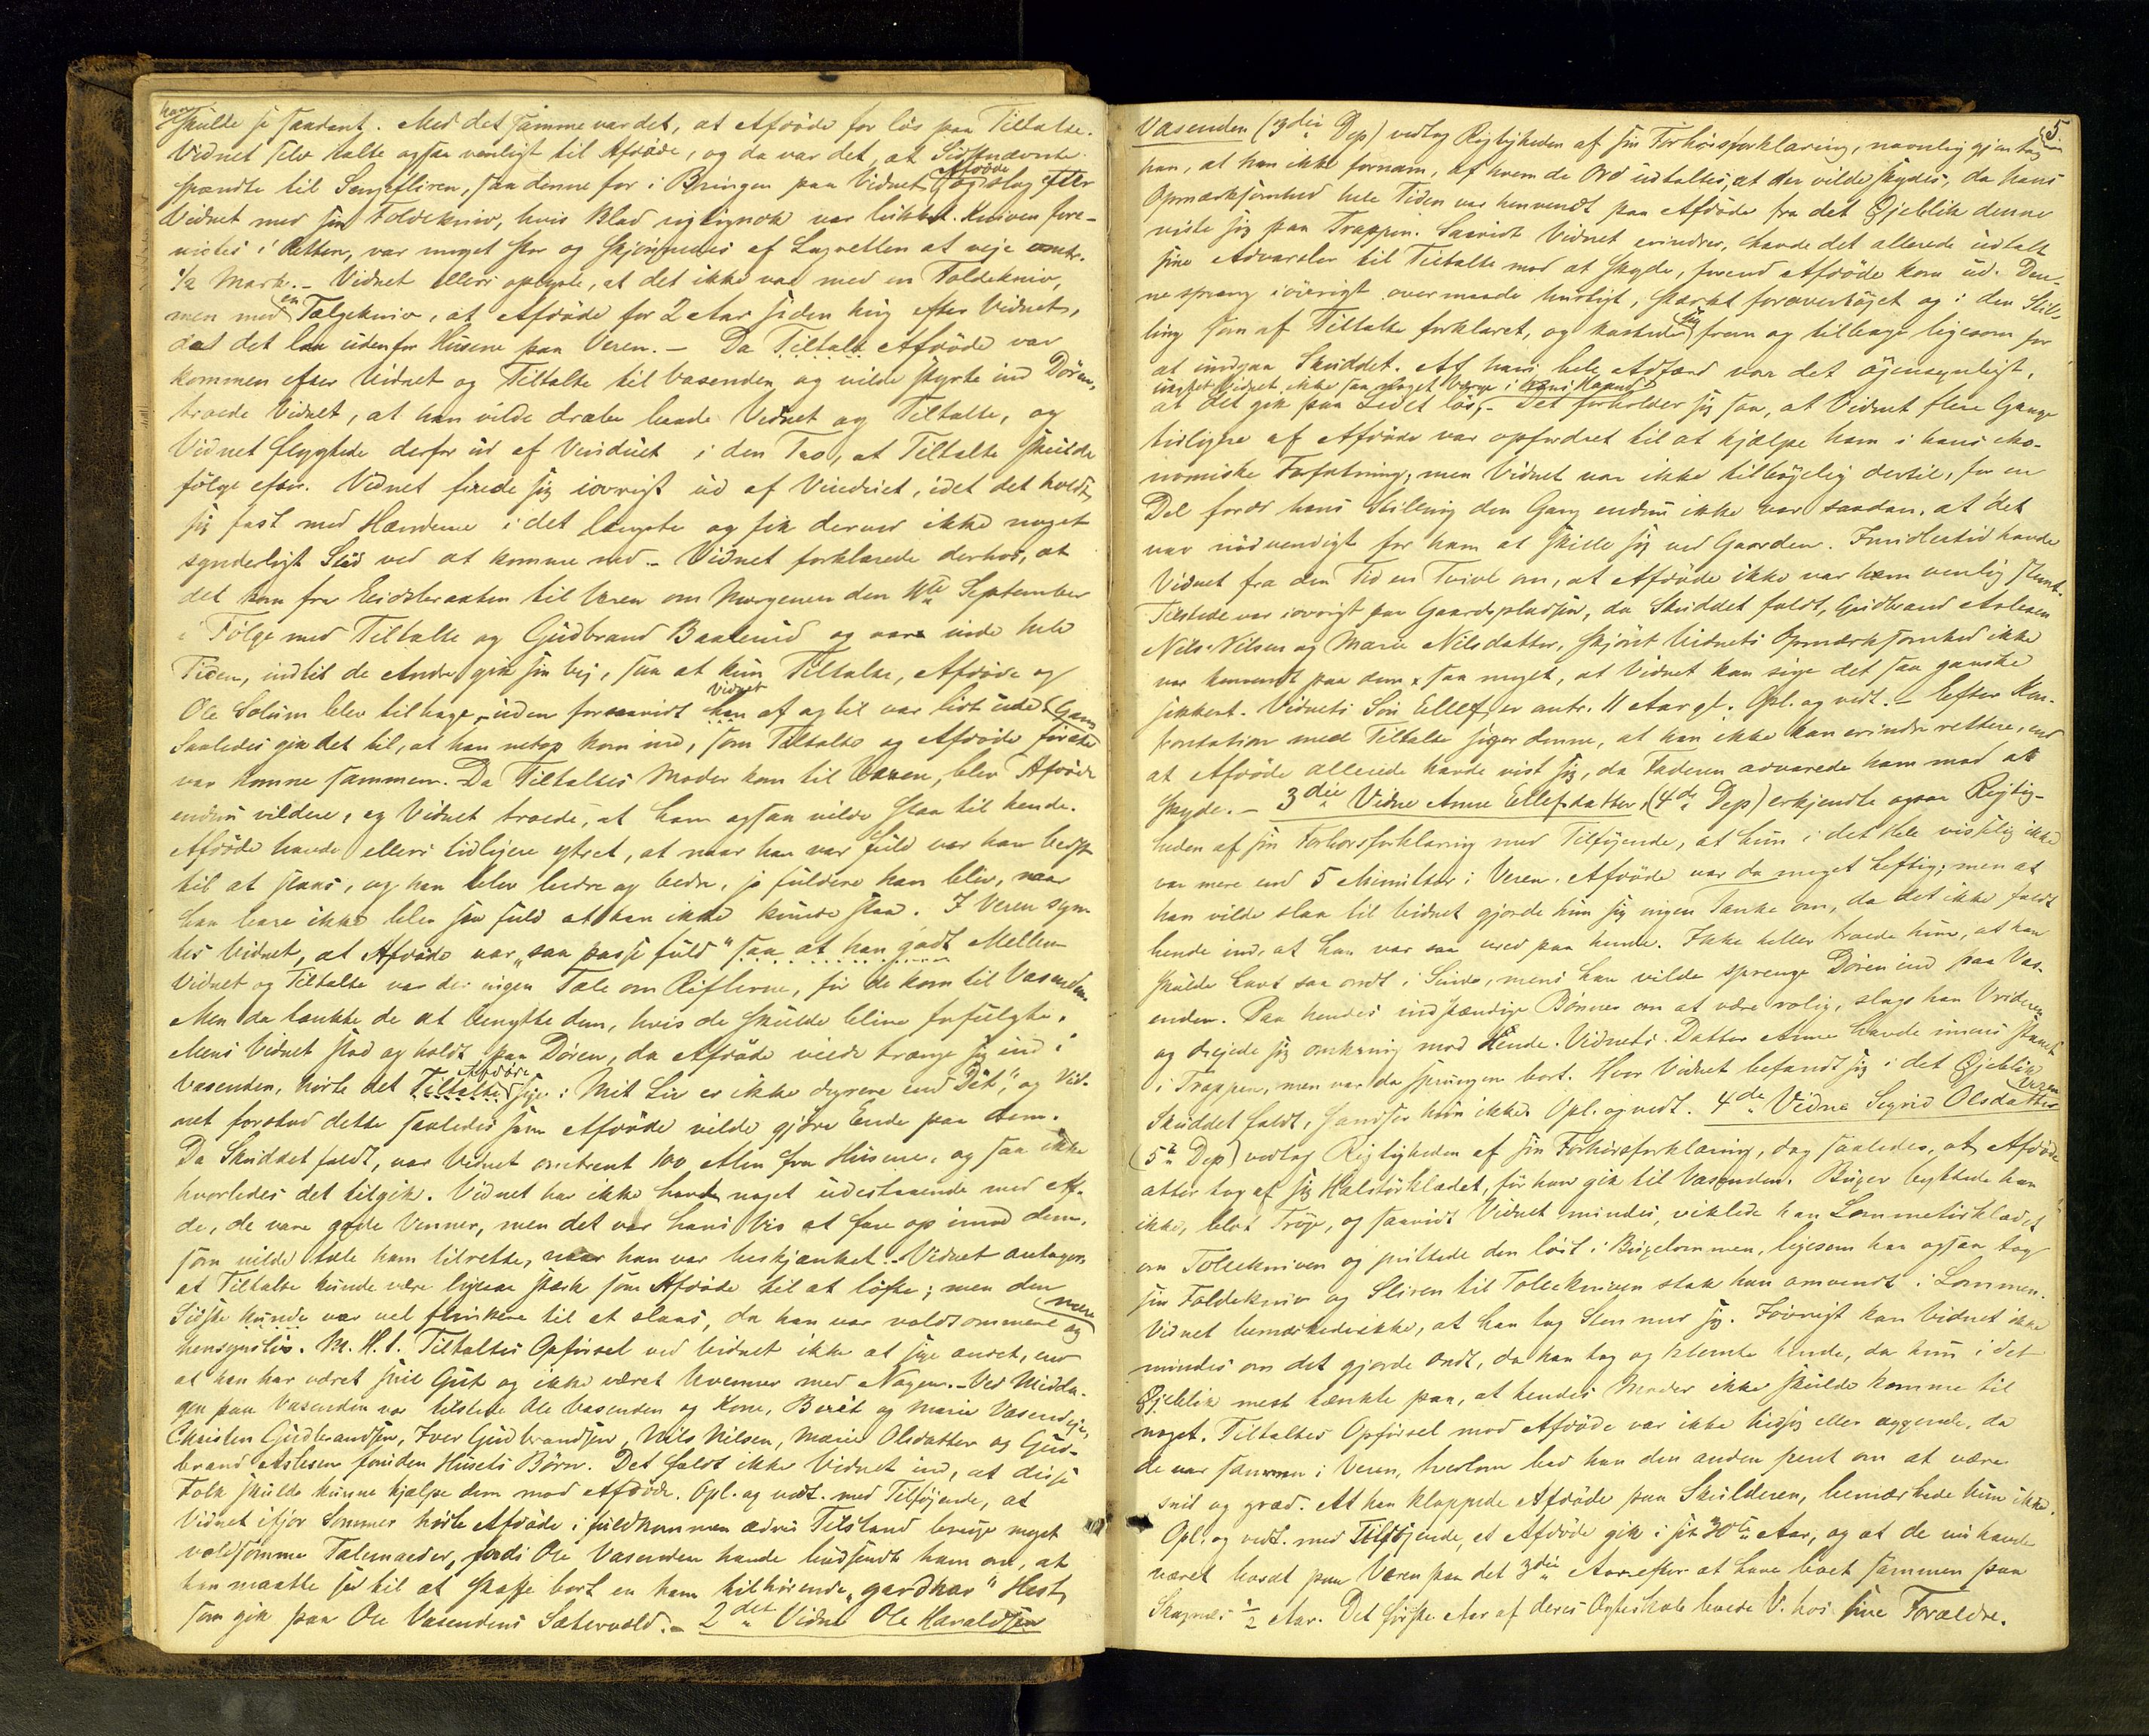 han
skulde se saadant. Med det samme var det, at Afdöde for lös paa Tiltalte.
Vidnet selv talte ogsaa venligt til Afdöde, og da var det, at Sidstnævnte
spændte til Sengefliren, saa denne for i Bringen paa Vidnet. Afdöde tog slog efter
Vidnet med sin Foldekniv, hvis Blad rigtignok var lukket. Kniven fore-
vistes i Retten, var meget stor og skjönnedes af Lagretten at veje omtr.
1/2 Mark. – Vidnet ellers oplyste, at det ikke var med en Foldekniv,
men med en Tælgekniv, at Afdöde for 2 Aar siden hug efter Vidnet,
da det laa udenfor Husene paa Veren. – Da Tiltalt Afdöde var
kommen efter Vidnet og Tiltalte til Vasenden og vilde styrte ind Dören,
troede Vidnet, at han vilde dræbe baade Vidnet og Tiltalte, og
Vidnet flygtede derfor ud af Vinduet i den Tro, at Tiltalte skulde
fölge efter. Vidnet firede sig iövrigt ud af Vinduet, idet det holdt
sig fast med Hænderne i det længste og fik derved ikke noget
synderligt Stöd ved at komme ned. – Vidnet forklarede derhos, at
det kom fra til Veren om Morgenen den 11te September
i Fölge med Tiltalte og Gudbrand Baaserud og var inde hele
Tiden, indtil de Andre gik sin Vej, saa at kun Tiltalte, Afdöde og
Ole Solum blev tilbage, uden forsaavidt Vidnet han af og til var lidt ude.
Saaledes gik det til, at han netop kom ind, som Tiltalte og Afdöde förste Gang
var komne sammen. Da Tiltaltes Moder kom til Veren, blev Afdöde
endnu vildere, og Vidnet troede, at ham ogsaa vilde slaa til hende.
Afdöde havde ellers tidligere ytret, at naar han var fuld var han bedst
til at slaas, og han blev bedre og bedre, jo fuldere han blev, naar
han bare ikke blev saa fuld at han ikke kunde staa. I Veren syn-
tes Vidnet, at Afdöde var „saa passe fuld" saa at han godt Mellem
Vidnet og Tiltalte var der ingen Tale om Riflerne, för de kom til Vasenden.
Men da tænkte de at benytte dem, hvis de skulde blive forfulgte.
Mens Vidnet stod og holdt paa Dören, da Afdöde vilde trænge sig ind i
Vasenden, hörte det Tiltalte Afdöde sige: Mit Liv er ikke dyrere end Dit", og Vid-
net forstod dette saaledes som Afdöde vilde gjöre Ende paa dem.
Da Skuddet faldt, var Vidnet omtrent 100 Alen fra Husene, og saa ikke
hvorledes det tilgik. Vidnet har ikke havt noget udestaaende med Af-
de, de vare gode Venner, men det var hans Vis at fare op imod dem,
som vilde tale ham tilrette, naar han var beskjænket. Vidnet antager,
at Tiltalte kunde være ligesaa stærk som Afdöde til at löfte; men den
Sidste kunde var vel flinkere til at slaas, da han var voldsommere og mere
hensynslös. M. H. t. Tiltaltes Opförsel ved Vidnet ikke at sige andet, end
at han har været snil Gut og ikke været Uvenner med Nogen. – Ved Midda-
gen paa Vasenden var tilstede Ole Vasenden og Kone, Berit og Marie Vasenden,
Christen Gudbrandsen, Iver Gudbrandsen, Nils Nilsen, Marie Olsdatter og Gud-
brand Aslesen foruden Husets Börn. Det faldt ikke Vidnet ind, at disse
Folk skulde kunne hjælpe dem mod Afdöde. Opl. og vedt. med Tilföjende, at
Vidnet ifjor Sommer hörte Afdöde i fuldkommen ædru Tilstand bruge meget
voldsomme Talemaader, fordi Ole Vasenden havde budsendt ham om, at
han maatte se til at skaffe bort en ham tilhörende „gardkar" Hest,
som gik paa Ole Vasendens Sætervold. – 2det Vidne Ole Haraldsen
5
Vasenden (3die Dep) vedtog Rigtigheden af sin Forhörsforklaring, navnlig gjentog
han, at han ikke fornam, af hvem de Ord udtaltes, at der vilde skydes, da hans
Opmærksomhed hele Tiden var henvendt paa Afdöde fra det Öjeblik denne
viste sig paa Trappen. Saavidt Vidnet erindrer, havde det allerede udtalt
sine Advarsler til Tiltalte mod at skyde, forend Afdöde kom ud. Den-
ne sprang iövrigt overmaade hurtigt, stærkt foroverböjet og i den Stil-
ling som af Tiltalte forklaret, og kastede sig frem og tilbage ligesom for
at undgaa Skuddet. Af hans hele Adfærd var det öjensynligt,
uagtet Vidnet ikke saa noget Værge i hans Haand
at det gik paa Livet lös. – Det forholder sig saa, at Vidnet flere Gange
tidligere af Afdöde var opfordret til at hjælpe ham i hans öko-
nomiske Forfatning, men Vidnet var ikke tilböjelig dertil, for en
Del fordi hans Stilling den Gang endnu ikke var saadan, at det
var nödvendigt for ham at skille sig ved Gaarden. Imidlertid havde
Vidnet fra den Tid en Tvivl om, at Afdöde ikke var ham venlig stemt.
Tilstede var iövrigt paa Gaardspladsen, da Skuddet faldt, Gudbrand Aslesen
Nils Nilsen og Marie Nilsdatter, skjönt Vidnets Opmærksomhed ikke
var henvendt paa dem saa meget, at Vidnet kan sige det saa ganske
sikkert. Vidnets Sön Ellef er omtr. 11 Aar gl. Opl. og vedt. – Efter Kon-
frontation med Tiltalte siger denne, at han ikke kan erindre rettere, end
at Afdöde allerede havde vist sig, da Faderen advarede ham mod at
skyde. – 3die Vidne Anne Ellefsdatter, (4de Dep) erkjendte ogsaa Rigtig-
heden af sin Forhörsforklaring med Tilföjende, at hun i det Hele visselig ikke
var mere end 5 Minutter i Veren. Afdöde var da meget heftig; men at
han vilde slaa til Vidnet gjorde hun sig ingen Tanke om, da det ikke faldt
hende ind, at han var saa vred paa hende. Ikke heller troede hun, at han
skulde havt saa ondt i Sinde, mens han vilde sprenge Dören ind paa Vas-
enden. Paa hendes indstændige Bönner om at være rolig, slap han Vrideren
og drejede sig omkring mod Hende. Vidnets Datter Anne havde imens staaet
i Trappen, men var da sprungen bort. Hvor Vidnet befandt sig i det Öjeblik
Skuddet faldt, sandser hun ikke. Opl. og vedt. 4de Vidne Segrid Olsdatter Veren
(5te Dep) vedtog Rigtigheden af sin Forhörsforklaring, dog saaledes, at Afdöde
atter tog af sig Halstörklædet, för han gik til Vasenden. Buxer byttede han
ikke, blot Tröje, og saavidt Vidnet mindes, viklede han Lommetörklædet
om Tollekniven og puttede den löst i Buxelommen, ligesom han ogsaa tog
sin Foldekniv og Sliren til Tollekniven stak han omvendt i Lommen.
Vidnet bemærkede ikke, at han tog Sten med sig. Iövrigt kan Vidnet ikke
mindes om det gjorde ondt, da han tog og klemte hende, da hun i det
Öjeblik mest tænkte paa, at hendes Moder ikke skulde komme til
noget. Tiltaltes Opförsel mod Afdöde var ikke hidsig eller eggende, da
de var sammen i Veren, hvorom bad han den anden pent om at være
snil og græd. At han klappede Afdöde paa Skulderen, bemærkede hun ikke.
Opl. og vedt. med Tilföjende, at Afdöde gik i sit 30te Aar, og at de nu havde
været bosat paa Veren paa det 3die Aar efter at have boet sammen paa
1/2 Aar. Det förste Aar af deres Ægteskab boede V. hos sine Forældre.